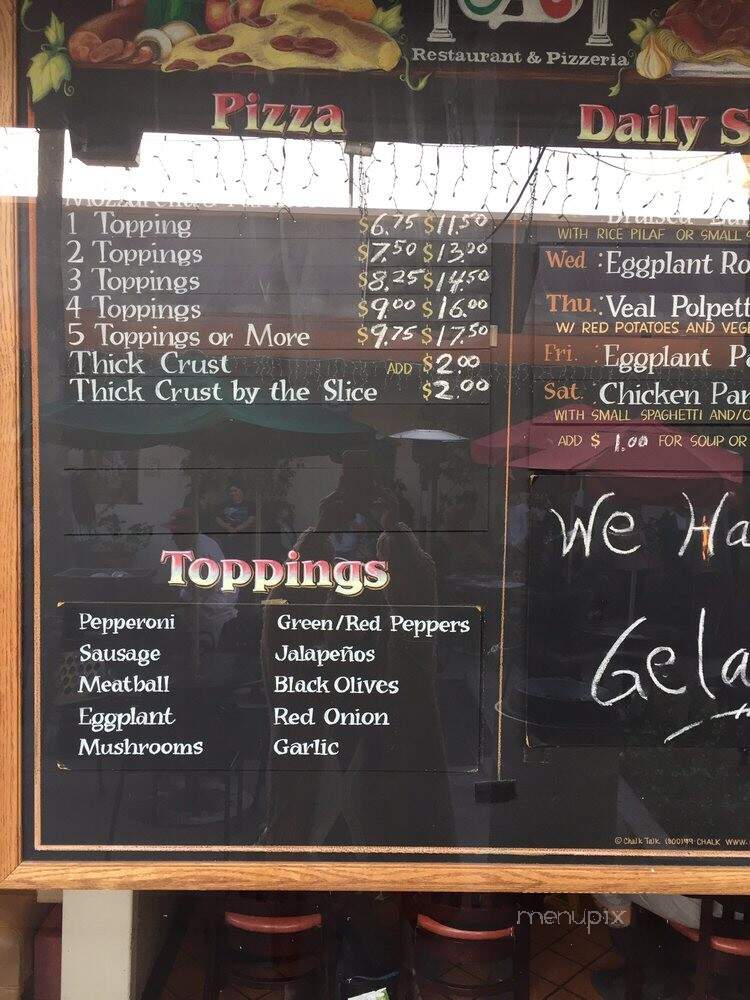 Restaurant & Pizzeria
Pizza
1 Topping $6.75 $11.50
2 Toppings $7.50 $13.00
3 Toppings $8.25 $14.50
4 Toppings $9.00 $16.00
5 Toppings or More $9.75 $17.50
Thick Crust ADD $2.00
Thick Crust by the Slice $2.00
Toppings
Pepperoni
Sausage
Meatball
Eggplant
Mushrooms
Green/Red Peppers
Jalapeños
Black Olives
Red Onion
Garlic
Daily S
WITH RICE PILAF OR SMALL S
Wed : Eggplant Ro
Thu.: Veal Polpett
W/ RED POTATOES AND VEGE
Fri. : Eggplant Pa
Sat. : Chicken Par
WITH SMALL SPAGHETTI AND/O
ADD $ 1.00 FOR SOUP OR
We Ha
Gela
© Chalk Talk (800)99-CHALK WWW.
menupix